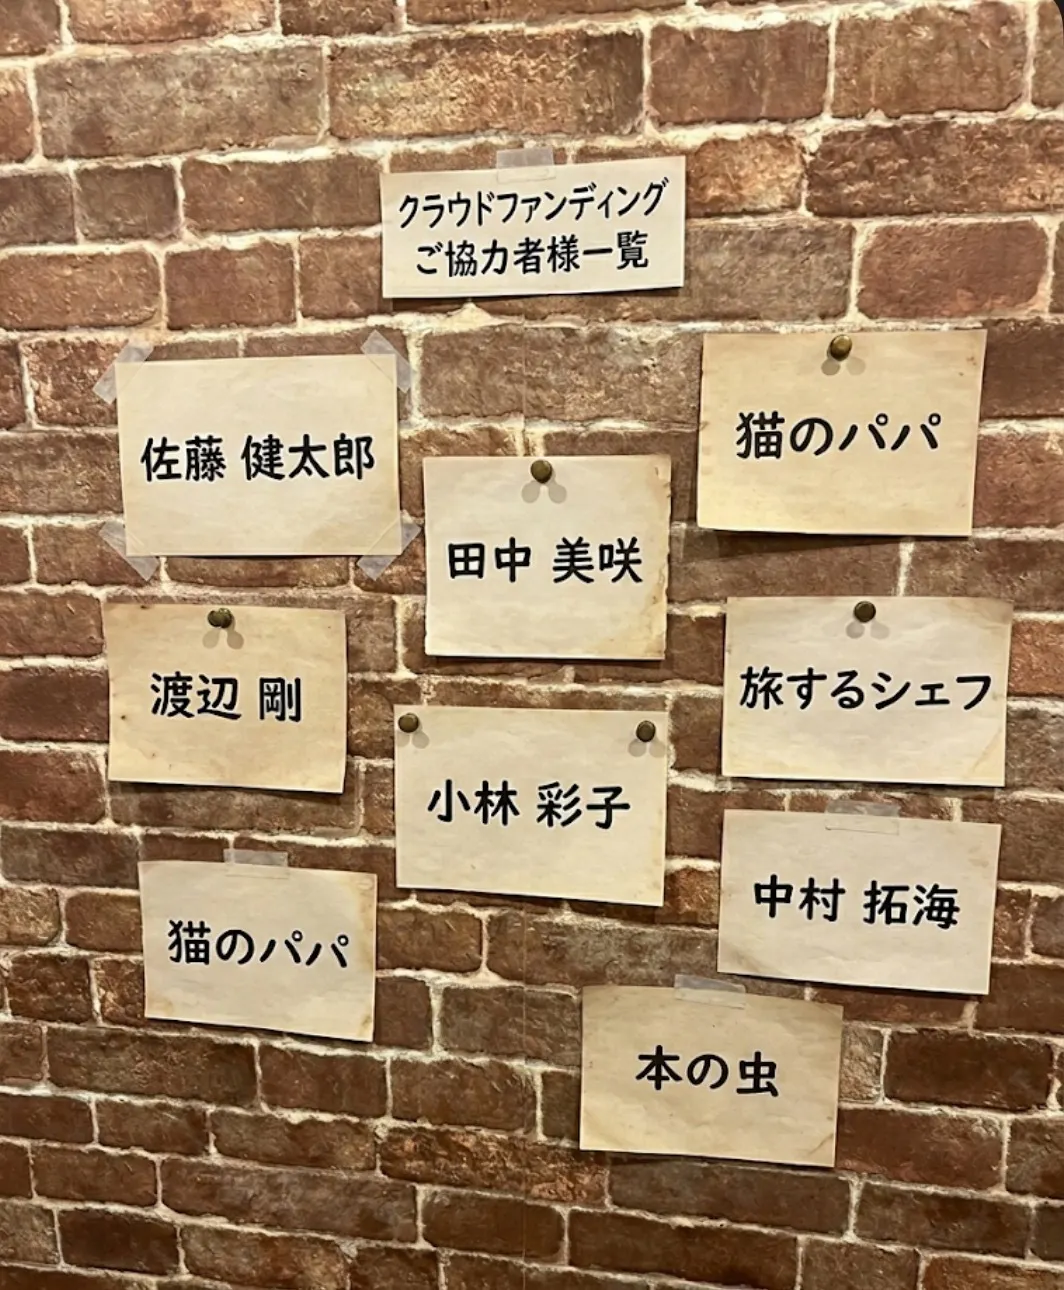 クラウドファンディング
ご協力者様一覧
佐藤 健太郎
猫のパパ
田中 美咲
渡辺 剛
旅するシェフ
小林 彩子
中村 拓海
猫のパパ
本の虫